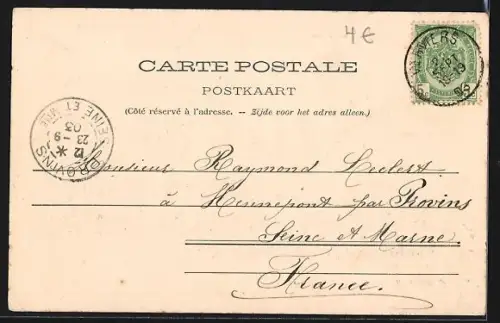 4€
CARTE POSTALE
POSTKAART
(Côté réservé à l'adresse. — Zijde voor het adres alleen.)
ANVERS
PROVINS
SEINE ET MNE
12 *
23 - 9
03
Monsieur Raymond Leclert
à Hennepont par Provins
Seine et Marne.
France.